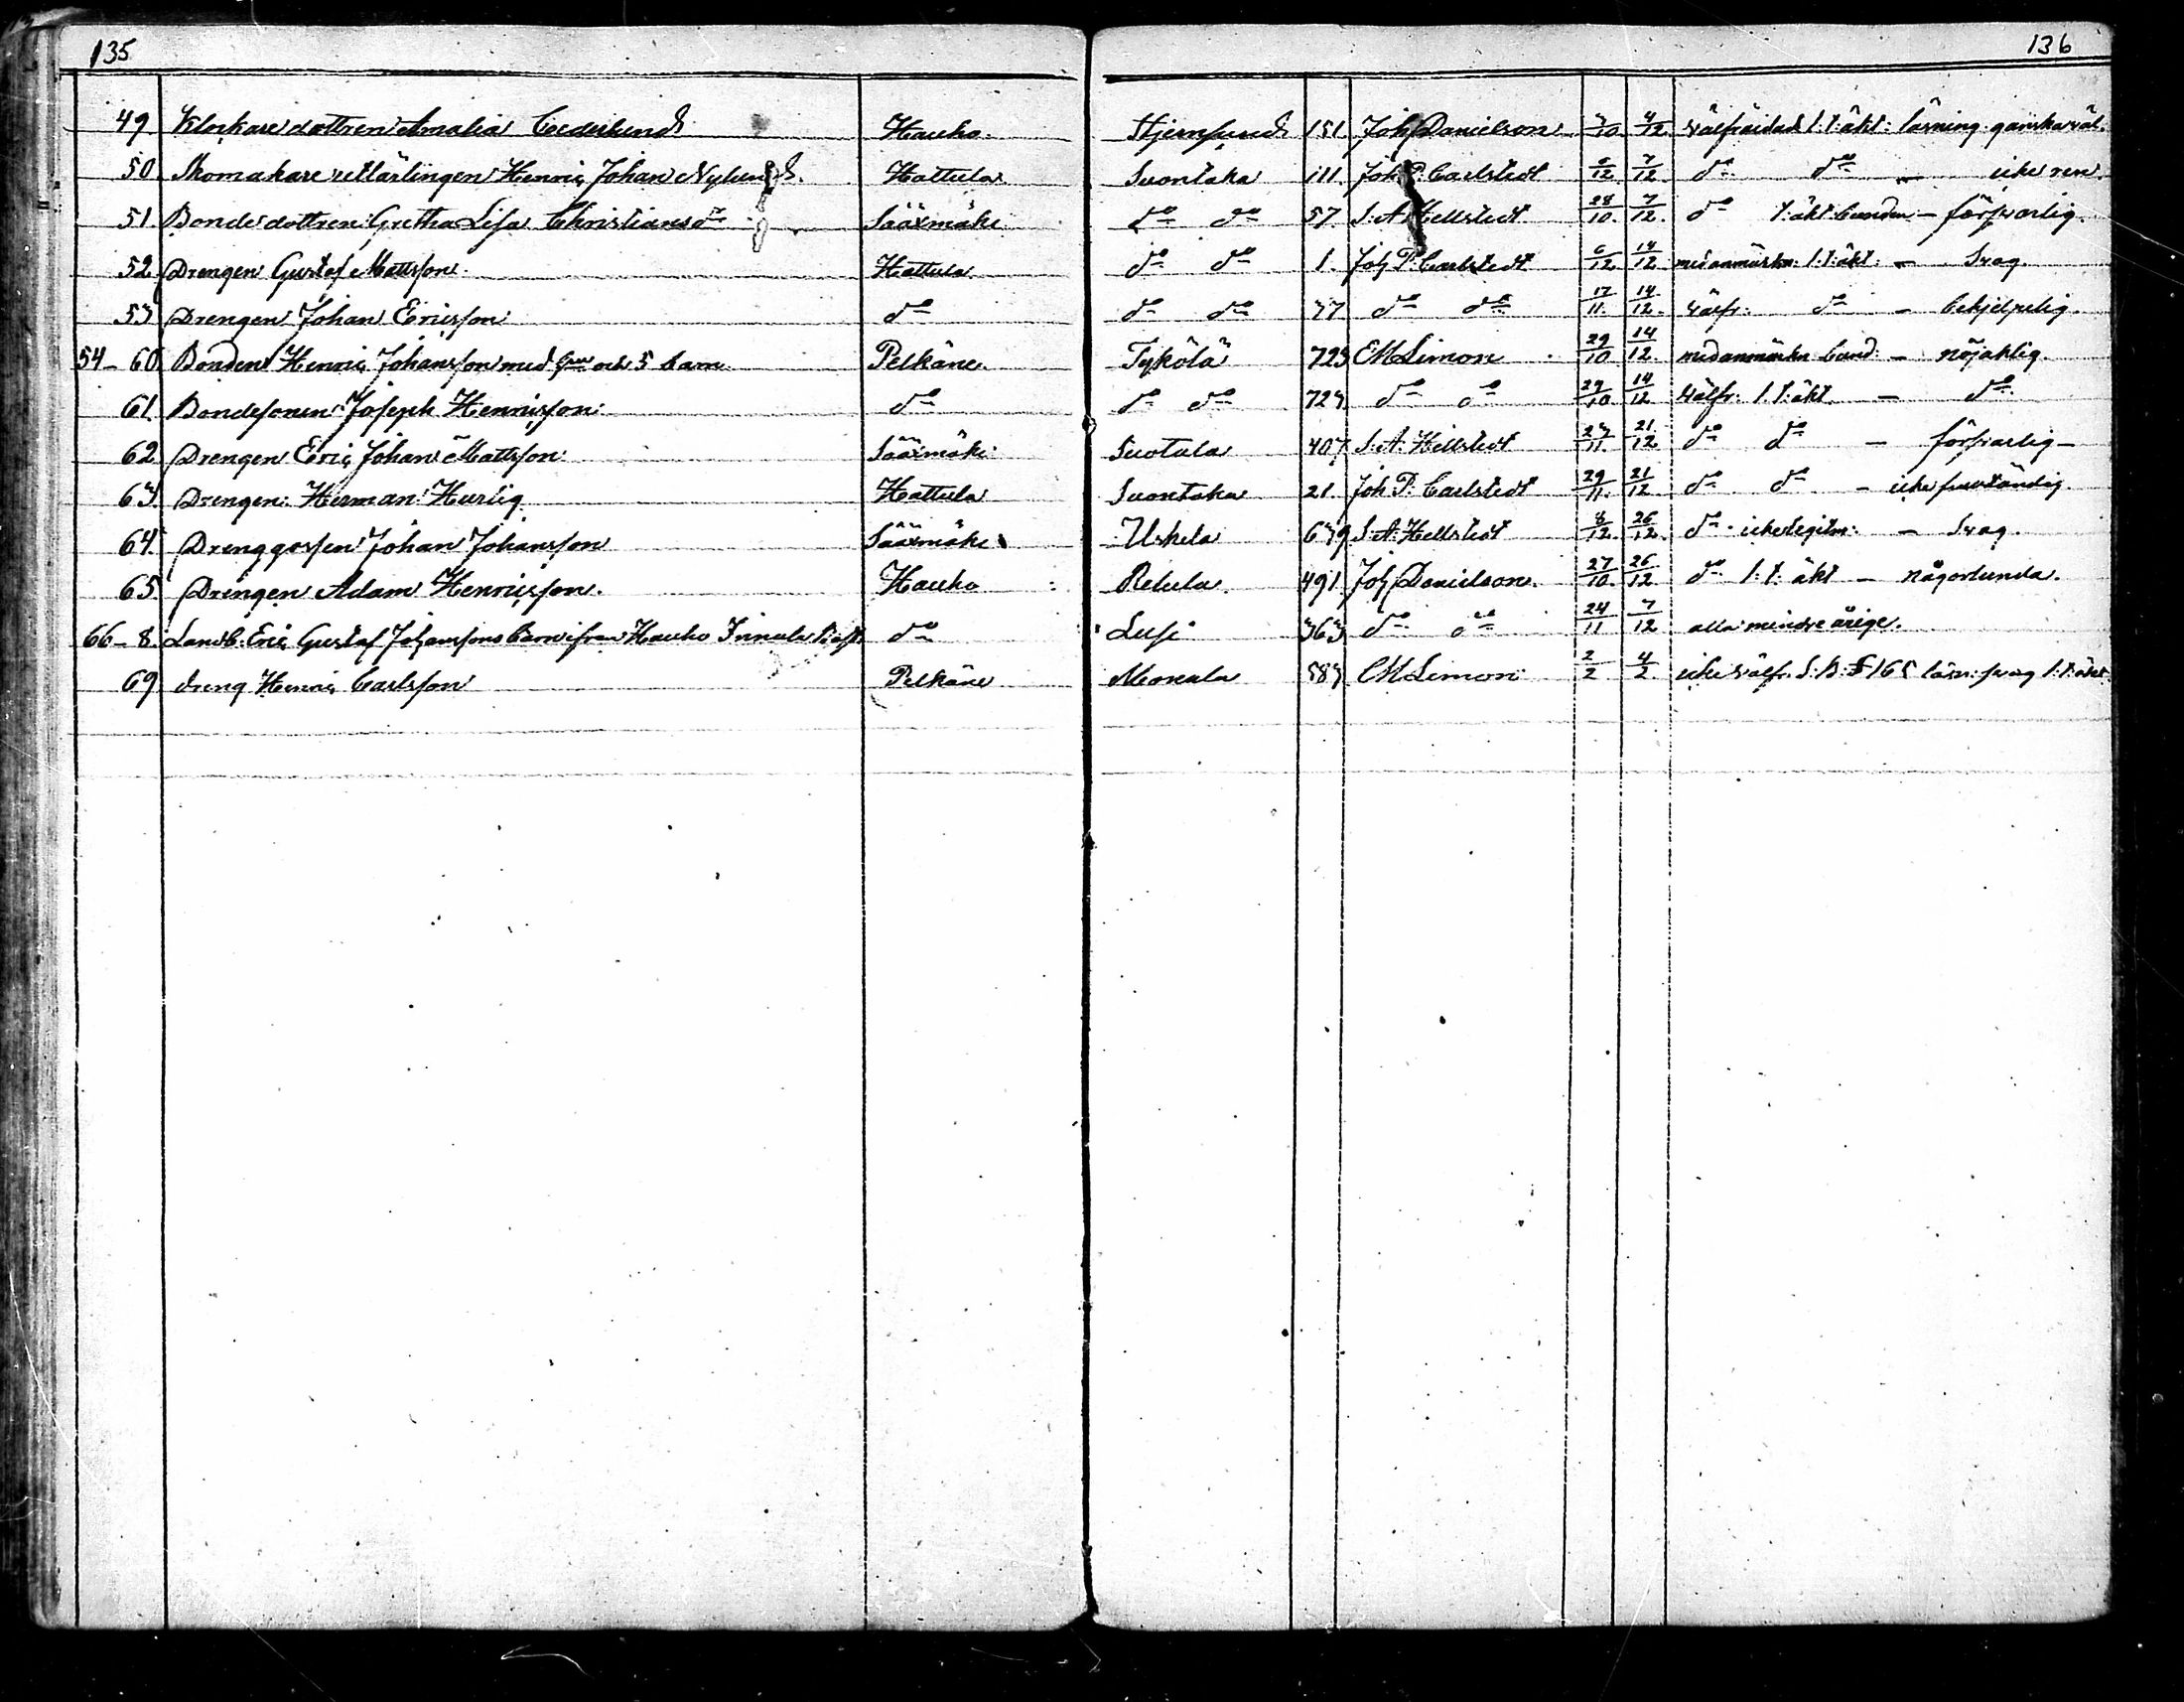 135
136
49 Klockaredottren Amalia Cederlund Hauho Stjernsund 151 Joh Danielson 3/10 4/12 välfräjdad l. t. äkt: läsning ganska väl.
50 Skomakare Henric Johan Nylund Hattula Suontaka 111. Joh. P. Carlstedt 6/12 7/12 do do – icke ren
51. Bondedottren Gretha Lisa Christiansdr Sääxmäki do do 57. S. A. Hellstedt 28/10. 7/12. do t. äkt. – försvarlig.
52 Drengen Gustaf Mattsson. Hattula do do 1. Joh P. Carlstedt 6/12 14/12 med anmärkn. l. t. äkt: – Svag.
53 Drengen Johan Ericsson do do do 37 do do 17/11. 14/12. Välfr: do – behjelpelig.
54–60 Bonden Henric Johansson med hu och 5 barn Pelkäne. Tykölä 723 CM Limon 29/10 14/12. med anmärkn – nöjaktig.
61. Bondesonen Joseph Henricsson: do do do 723 do do 29/10 14/12 Välfr: l. t. äkt. – do
62 Drengen Eric Johan Mattsson Sääxmäki Suotula 407 S. A. Hellstedt 27/11. 21/12 do do – försvarlig –
63. Drengen Herman Hurtig Hattula Suontaka 21. Joh P. Carlstedt 29/11. 21/12 do do – icke fullständig.
64. Drenggossen Johan Johansson Sääxmäki Uskela 639 S. A. Hellstedt 8/12. 26/12. do icke legitm: – Svag.
65. Drengen Adam Henricsson. Hauho Retula 491 Joh Danielson. 27/10. 26/12 do l. t. äkt – någorlunda.
66–8. Landb. Eric Gustaf Johanssons barn ifrån Hauho do Lusi 363 do do 24/11 7/12 alla minderårige.
69 dreng Henric Carlsson Pelkäne Monaala 583 CM Limon 2/2 4/2 icke välfr. S. B. § 165 läsn: svag l. t. äkt